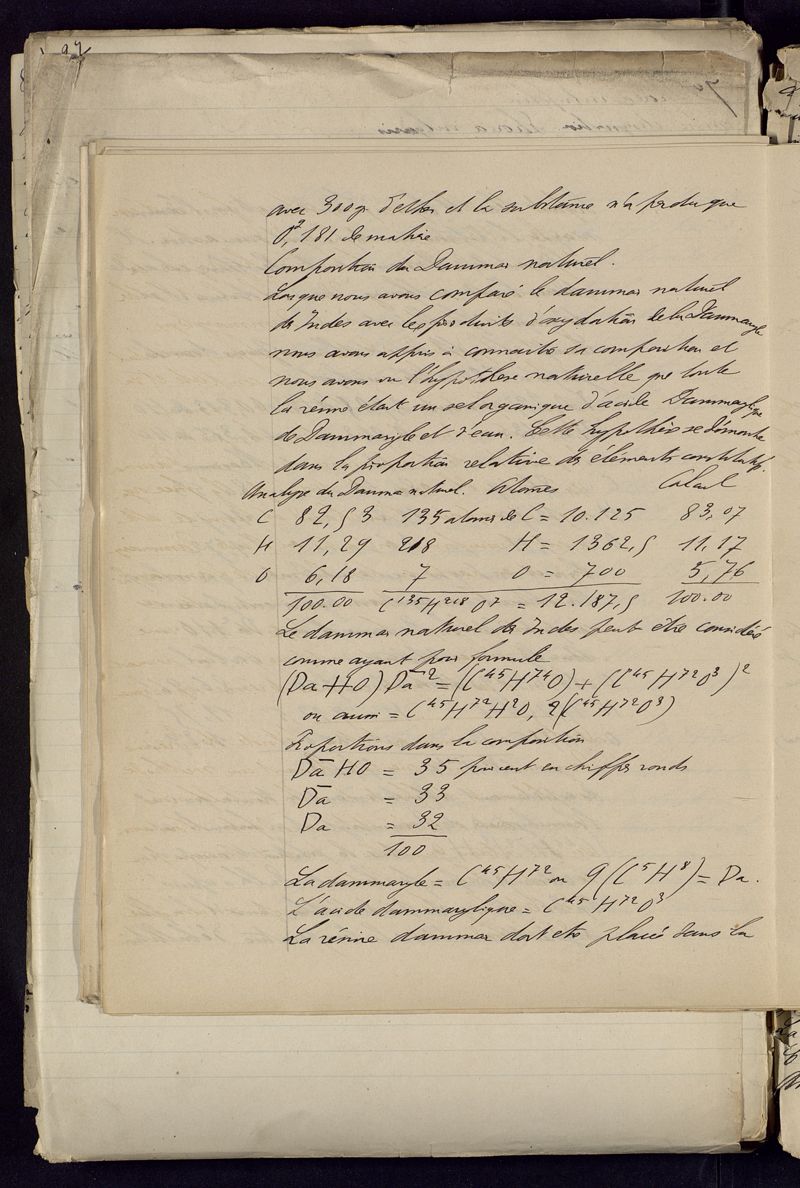 avec 300gr d'ether et la substance n'a perdu que
0,g181 de matière
Composition du Dammar naturel.
Lorsque nous avons comparé le dammar naturel
des Indes avec les produits d'oxydation de la Dammaryle
nous avons appris à connaitre sa composition et
nous avons vu l'hypothèse naturelle que toute
la résine était un sel organique d'acide Dammarylique
de Dammaryle et d'eau. Cette hypothèse se démontre
dans la proportion relative des éléments constitutifs.
Analyse du Dammar naturel. Atomes Calcul
C 82,53 135 atomes de C = 10.125 83,07
H 11,29 218 H = 1362,5 11,17
O 6,18 7 O = 700 5,76
100.00 C¹³⁵H²¹⁸O⁷ = 12.187,5 100.00
Le dammar naturel des Indes peut etre considéré
comme ayant pour formule
(Da HO) D̄a² = (C⁴⁵H⁷⁴O) + (C⁴⁵H⁷²O³)²
ou aussi = C⁴⁵H⁷²H²O, 2(C⁴⁵H⁷²O³)
Proportions dans la composition
D̄a HO = 35 pour cent en chiffres ronds
D̄a = 33
Da = 32
100
La dammaryle = C⁴⁵H⁷² ou 9(C⁵H⁸) = Da.
L'acide dammarylique = C⁴⁵H⁷²O³
La résine dammar doit etre placée dans la